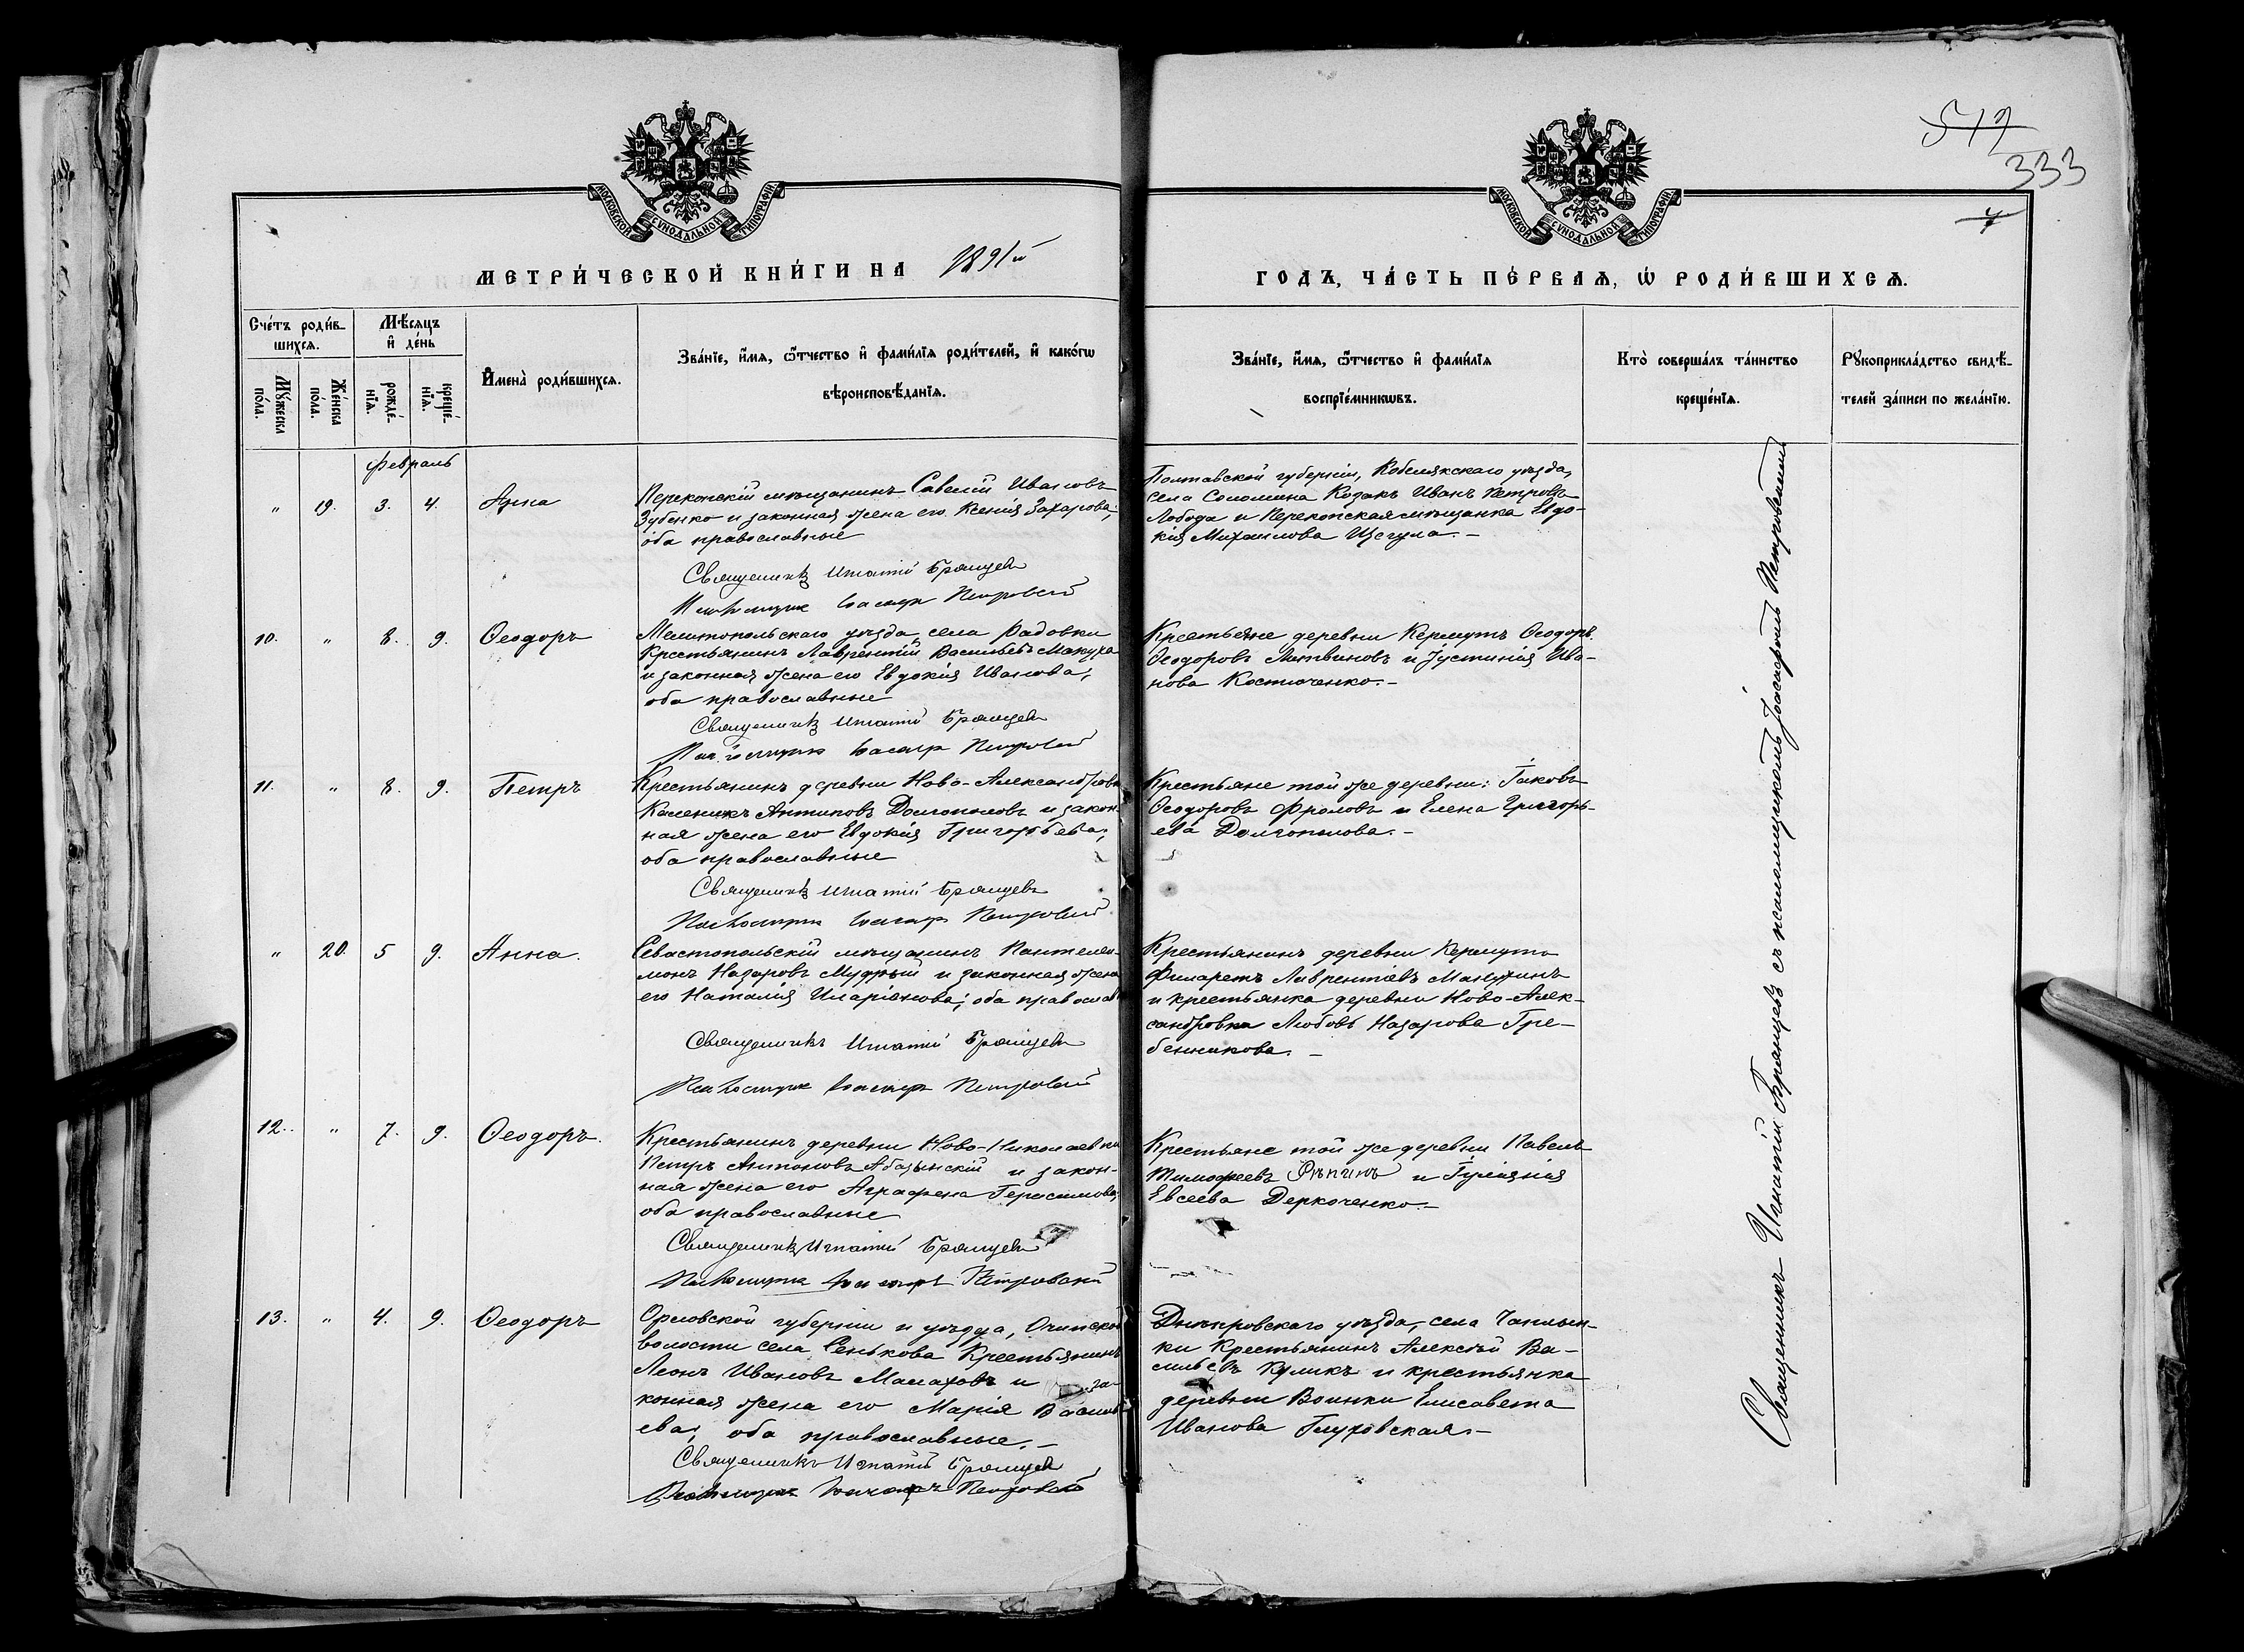 519
333
7
МОСКОВСКОЙ СѴНОДАЛЬНОЙ ТИПОГРАФІИ
МОСКОВСКОЙ СѴНОДАЛЬНОЙ ТИПОГРАФІИ
МЕТРИ́ЧЕСКОЙ КНИ́ГИ НА 1891й
ГОДЪ, ЧА́СТЬ ПЕ́РВАѦ, Ѡ҆ РОДИ́ВШИХСѦ.
Сче́тъ роди́в-
шихсѧ.
Мѣ́сѧцъ
и҆ де́нь
Мꙋ́жеска
по́ла.
Же́нска
по́ла.
рожде́-
нїѧ.
креще́-
нїѧ.
И҆мена̀ роди́вшихсѧ.
Зва́нїе, и҆́мѧ, ѻ҆́тчество и҆ фами́лїѧ роди́телей, и҆ како́гѡ
вѣроисповѣ́данїѧ.
Зва́нїе, и҆́мѧ, ѻ҆́тчество и҆ фами́лїѧ
воспрїе́мникѡвъ.
Кто̀ соверша́лъ та́инство
креще́нїѧ.
Рꙋкоприкла́дство свидѣ́-
телей за́писи по жела́нїю.
Февраль
" 19. 3. 4. Анна
Перекопскій мѣщанинъ Савелій Ивановъ
Зубенко и законная жена его Ксенія Захарова;
оба православные
Священникъ Игнатій Брянцевъ
Псаломщикъ Іоасафъ Петровскій
Полтавской губерніи, Кобелякскаго уѣзда,
села Соломина Козакъ Иванъ Петровъ
Лобода и Перекопская мѣщанка Евдо-
кія Михаилова Щегула.-
10. " 8. 9. Ѳеодоръ
Мелитопольскаго уѣзда, села Радовки
Крестьянинъ Лаврентій Васильевъ Макуха
и законная жена его Евдокія Иванова;
оба православные
Священникъ Игнатій Брянцевъ
Псаломщикъ Іоасафъ Петровскій
Крестьяне деревни Кермутъ Ѳеодоръ
Ѳеодоровъ Литвиновъ и Іустинія Ива-
нова Костюченко.-
11. " 8. 9. Петръ
Крестьянинъ деревни Ново-Александровки
Каленикъ Антиповъ Долгополовъ и закон-
ная жена его Евдокія Григорьева;
оба православные
Священникъ Игнатій Брянцевъ
Псаломщикъ Іоасафъ Петровскій
Крестьяне той же деревни: Іаковъ
Ѳеодоровъ Фроловъ и Елена Григорь-
ева Долгополова.-
" 20. 5 9. Анна.
Севастопольскій мѣщанинъ Пантелеи-
монъ Назаровъ Мудрый и законная жена
его Наталія Иларіонова; оба православ
Священникъ Игнатій Брянцевъ
Псаломщикъ Іоасафъ Петровскій
Крестьянинъ деревни Кермутъ
Филаретъ Лаврентіевъ Макухинъ
и крестьянка деревни Ново-Алек-
сандровки Любовь Назарова Гре-
бенникова.-
12. " 7. 9. Ѳеодоръ.
Крестьянинъ деревни Ново-Николаевки
Петръ Антоновъ Абазынскій и закон-
ная жена его Аграфена Герасимова;
оба православные
Священникъ Игнатій Брянцевъ
Псаломщикъ Іоасафъ Петровскій
Крестьяне той же деревни Павелъ
Тимофеевъ Рѣпинъ и Іуліянія
Евсеева Деркоченко.-
13. " 4. 9. Ѳеодоръ
Орловской губерніи и уѣзда,
волости села Сенькова Крестьянинъ
Леонъ Ивановъ Малаховъ и за-
конная жена его Марія Василь
ева; оба православные.-
Священникъ Игнатій Брянцевъ
Псаломщикъ Іоасафъ Петровскій
Днѣпровскаго уѣзда, села Чаплын-
ки Крестьянинъ Алексѣй Ва-
сильевъ Куликъ и крестьянка
деревни Воинки Елисавета
Иванова Глуховская.-
Священникъ Игнатій Брянцевъ съ псаломщикомъ Іоасафомъ Петровскимъ